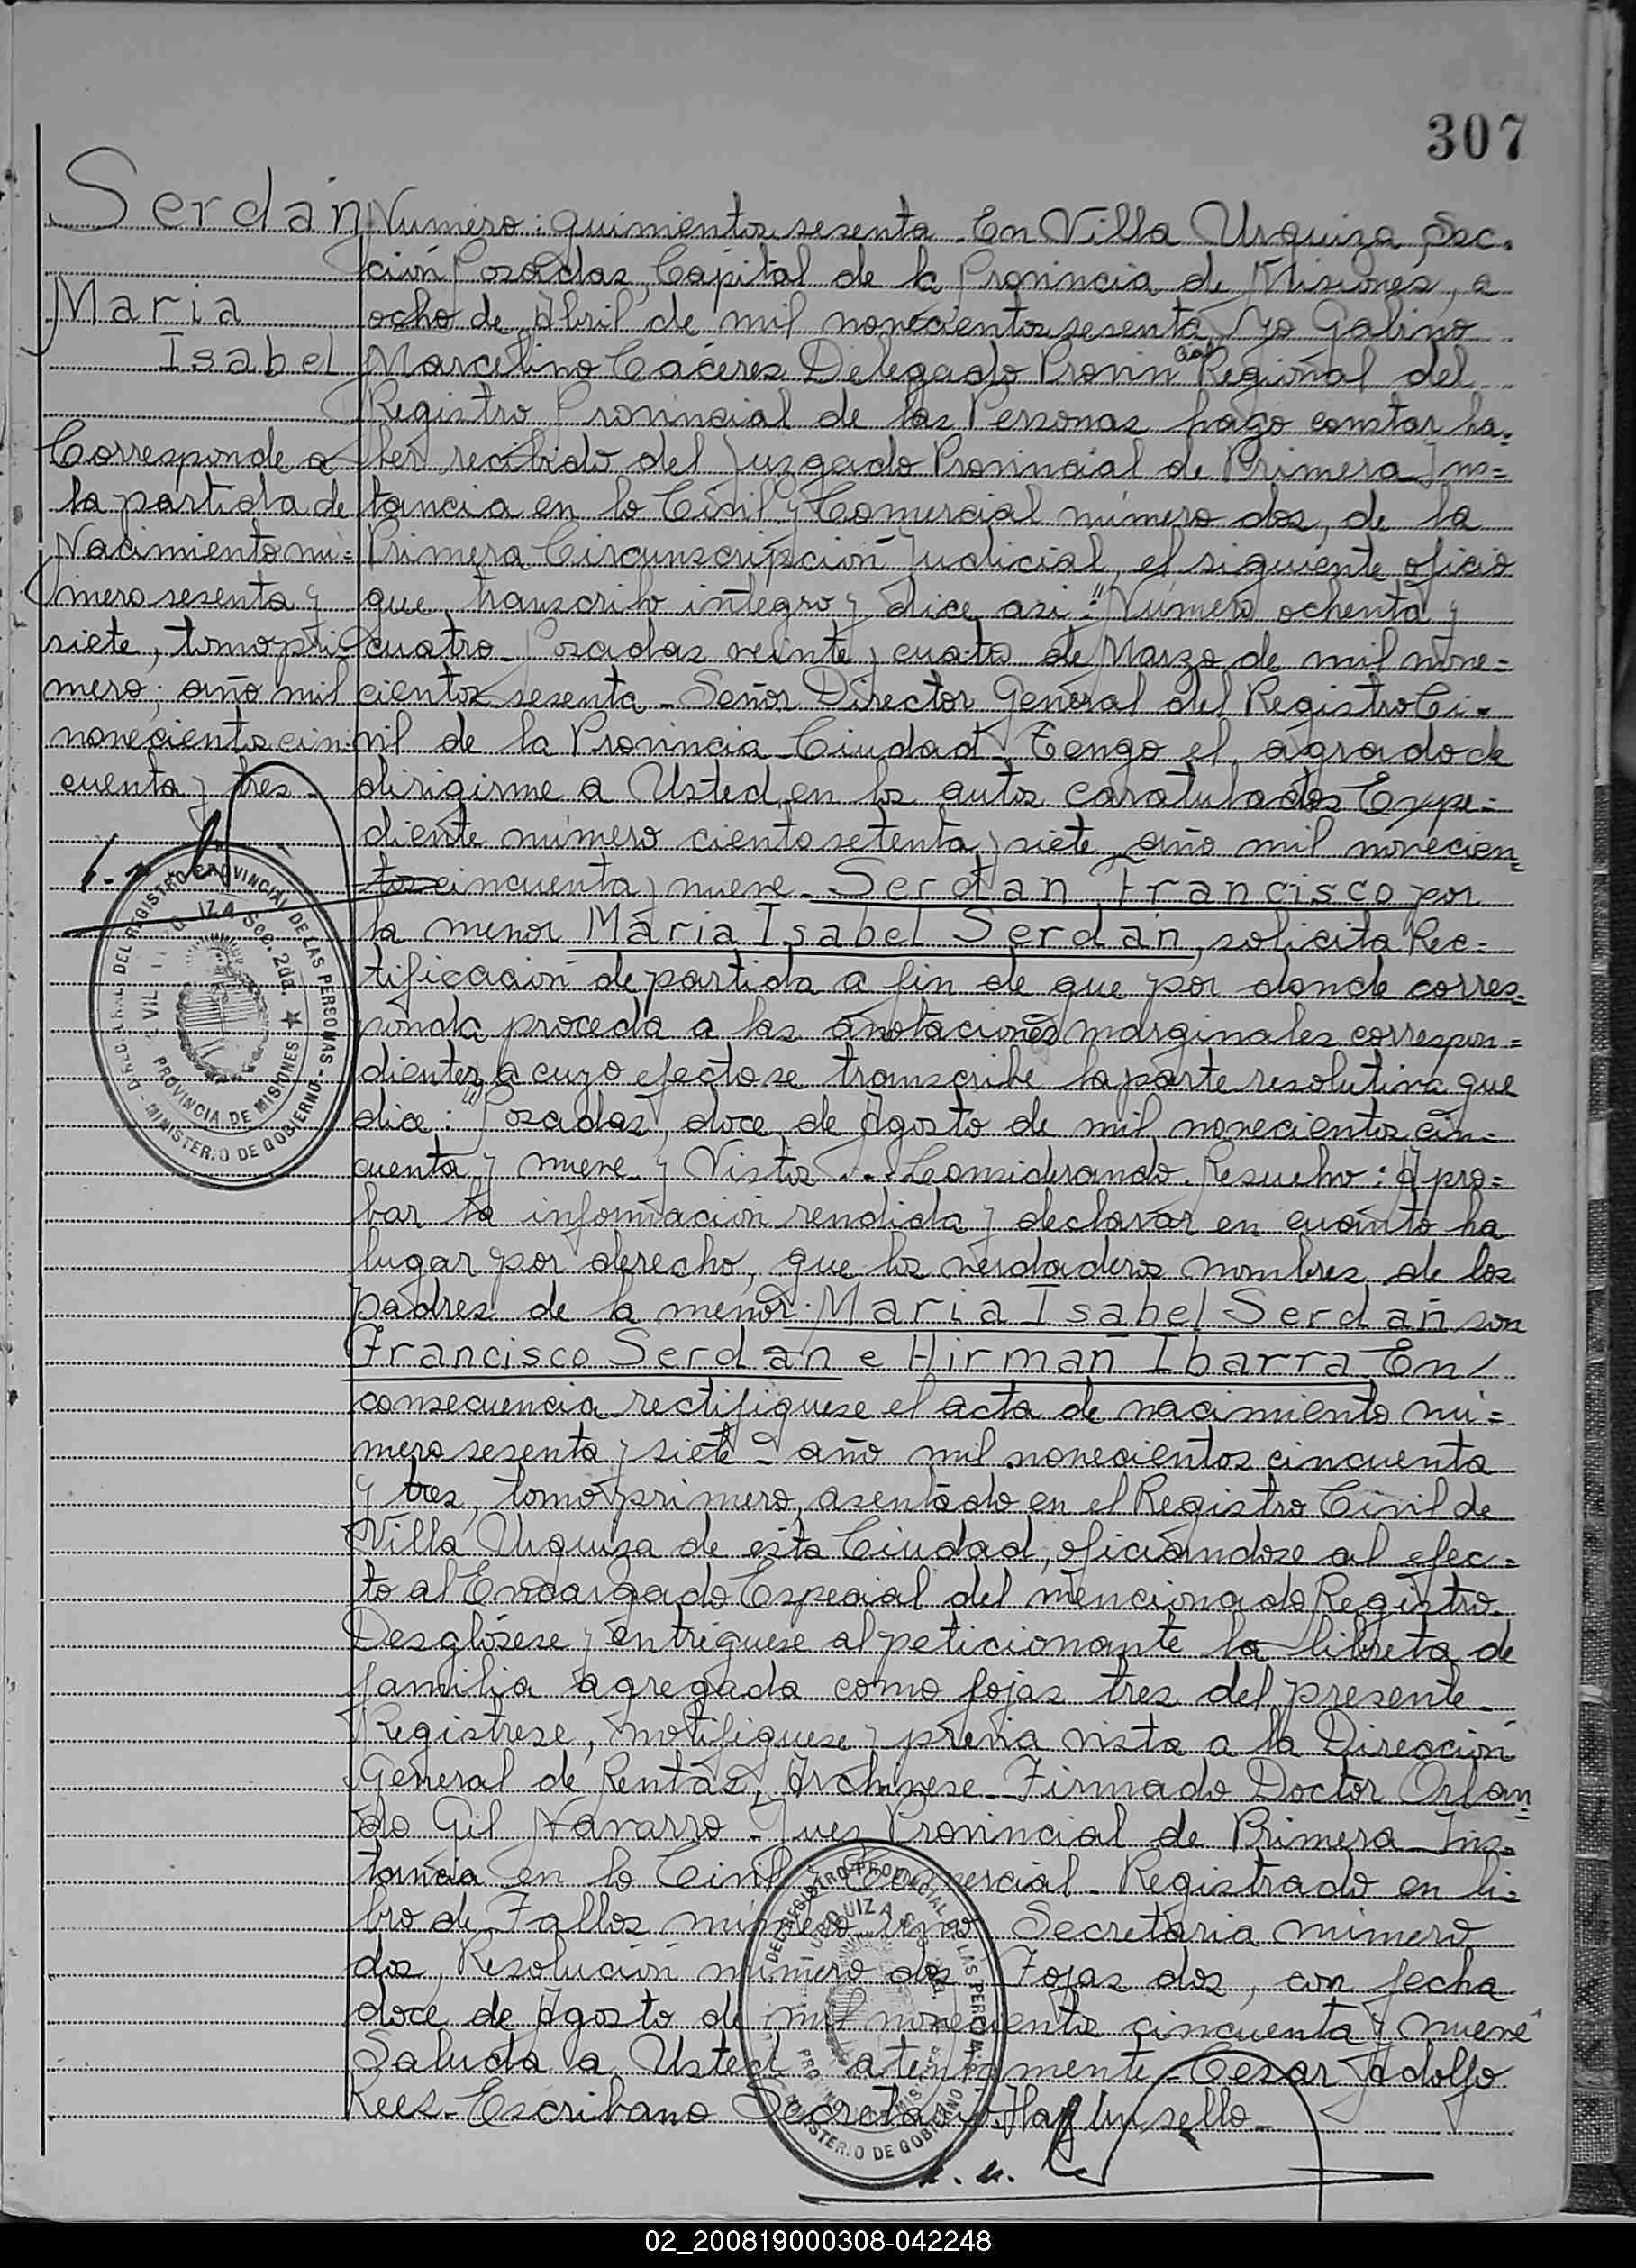 307
Serdán
Maria
Isabel
Corresponde a
la partida de
Nacimiento nú=
mero sesenta y
siete, tomo pri=
mero; año mil
novecientos cin-
cuenta y tres-
Número: quinientos sesenta. En Villa Urquiza, Sec-
ción Posadas, Capital de la Provincia de Misiones, a
ocho de Abril de mil novecientos sesenta, yo Galvino
Marcelino Cáceres Delegado Provin cial Regional del
Registro Provincial de las Personas hago constar ha-
ber recibido del Juzgado Provincial de Primera Ins=
tancia en lo Civil y Comercial número dos, de la
Primera Circunscripción Judicial, el siguiente oficio
que transcribo integro y dice asi: "Número ochenta y
cuatro- Posadas veinte y cuatro de Marzo de mil nove=
cientos sesenta- Señor Director General del Registro Ci-
vil de la Provincia- Ciudad. Tengo el agrado de
dirigirme a Usted, en los autos caratulados Expe-
diente número ciento setenta y siete, año mil novecien=
tos cincuenta y nueve- Serdán, Francisco por
la menor Maria Isabel Serdán, solicita Rec=
tificación de partida a fin de que por donde corres=
ponda proceda a las anotaciones marginales correspon=
dientes a cuyo efecto se transcribe la parte resolutiva que
dice: "Posadas, doce de Agosto de mil novecientos cin-
cuenta y nueve. y Vistos ... Considerando. Resuelvo: Apro=
bar la información rendida y declarar en cuánto ha
lugar por derecho, que los verdaderos nombres de los
padres de la menor: Maria Isabel Serdán son
Francisco Serdán e Hirman Ibarra- En/
consecuencia rectifiquese el acta de nacimiento nú=
mero sesenta y siete- año mil novecientos cincuenta
y tres, tomo primero, asentado en el Registro Civil de
Villa Urquiza de esta Ciudad, oficiándose al efec=
to al Encargado Especial del mencionado Registro.
Desglósese y entréguese al peticionante la libreta de
familia agregada como fojas tres del presente-
Registrese, notifiquese y previa vista a la Dirección
General de Rentas, Archivese- Firmado Doctor Orlan=
do Gil Navarro- Juez Provincial de Primera Ins=
tancia en lo Civil y Comercial- Registrado en li=
bro de Fallos número uno, Secretaria número
dos, Resolución número dos, Fojas dos, con fecha
doce de Agosto de mil novecientos cincuenta y nueve
Saluda a Usted atentamente- Cesar Adolfo
Rees- Escribano Secretario. Hay un sello-
DEL REGISTRO PROVINCIAL DE LAS PERSONAS - MINISTERIO DE GOBIERNO
URQUIZA Sec. 2da. ★
PROVINCIA DE MISIONES
02_200819000308-042248